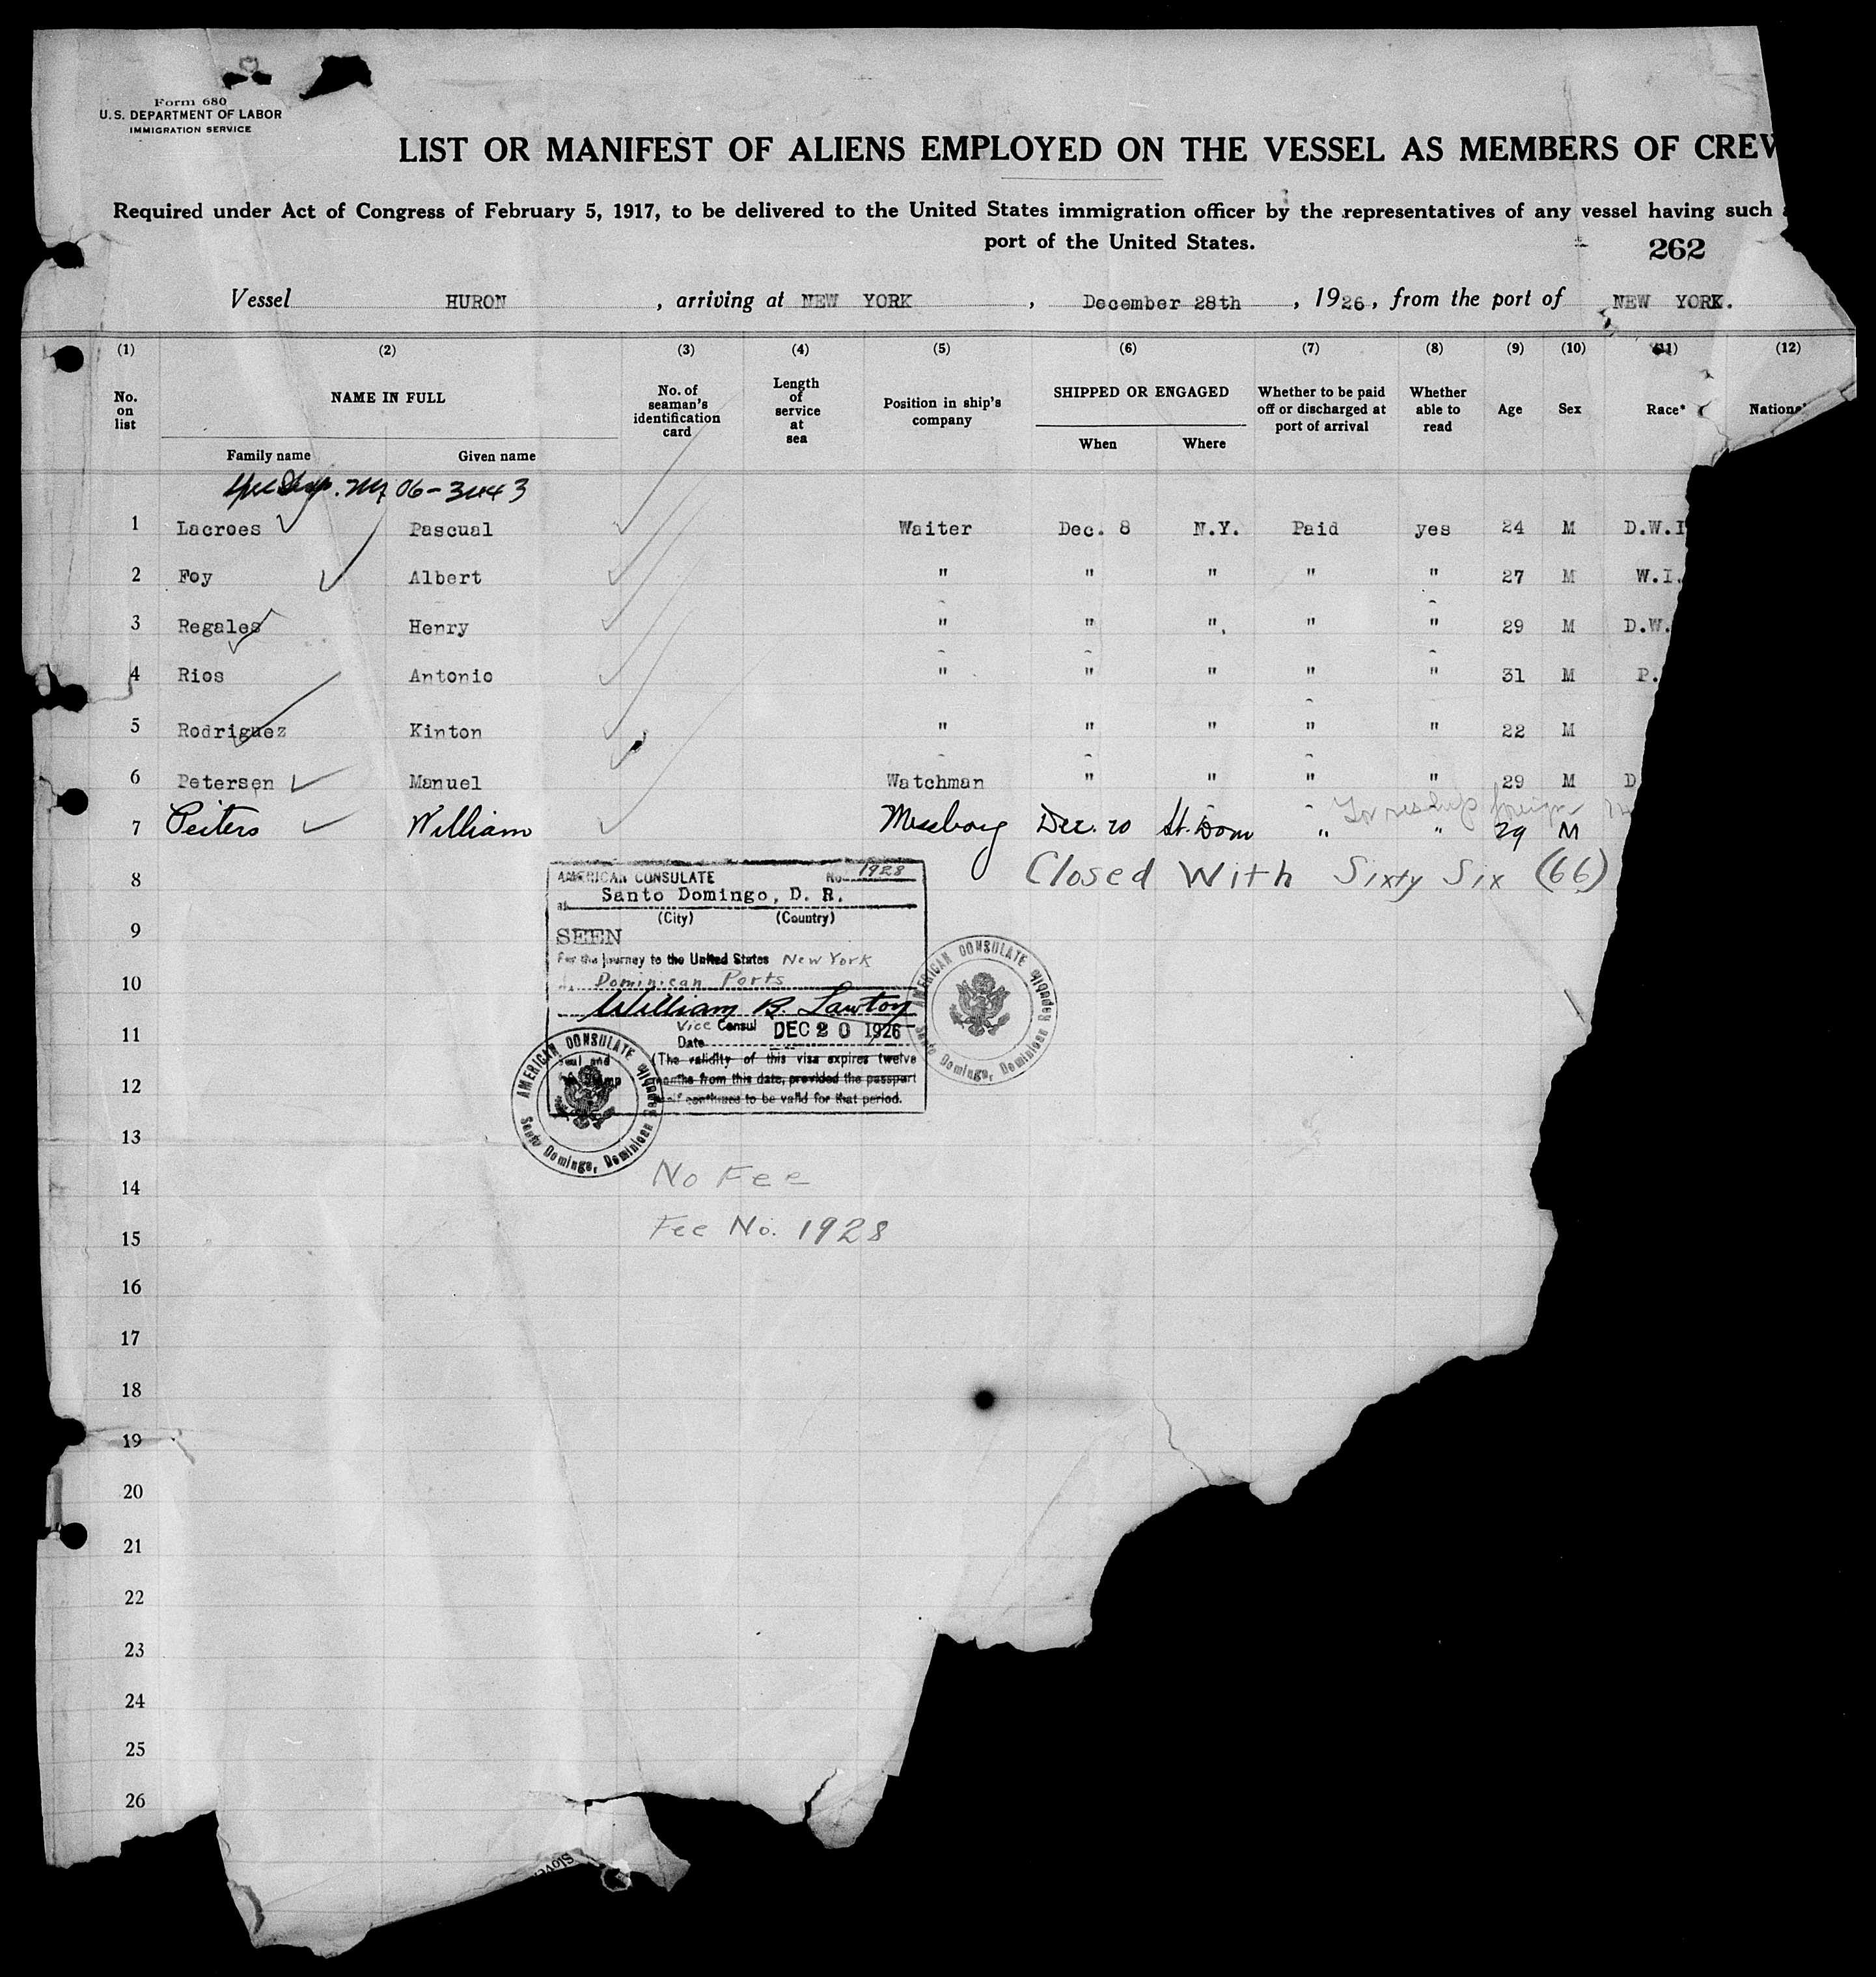 Form 680
U. S. DEPARTMENT OF LABOR
IMMIGRATION SERVICE
LIST OR MANIFEST OF ALIENS EMPLOYED ON THE VESSEL AS MEMBERS OF CREW
Required under Act of Congress of February 5, 1917, to be delivered to the United States immigration officer by the representatives of any vessel having such
port of the United States.
262
Vessel HURON , arriving at NEW YORK , December 28th , 1926, from the port of NEW YORK.
(1) (2) (3) (4) (5) (6) (7) (8) (9) (10) (11) (12)
No. on list NAME IN FULL No. of seaman's identification card Length of service at sea Position in ship's company SHIPPED OR ENGAGED Whether to be paid off or discharged at port of arrival Whether able to read Age Sex Race* National
Family name Given name When Where
06-3443
1 Lacroes Pascual Waiter Dec. 8 N.Y. Paid yes 24 M D.W.I
2 Foy Albert " " " " " 27 M W.I.
3 Regales Henry " " " " " 29 M D.W.
4 Rios Antonio " " " " " 31 M P.
5 Rodriguez Kinton " " " " " 22 M
6 Petersen Manuel Watchman " " " " 29 M D
To reship foreign
7 Peiters William Messboy Dec. 20 St. Dom " " 29 M
8 Closed With Sixty Six (66)
AMERICAN CONSULATE No. 1928
at Santo Domingo, D. R.
(City) (Country)
9
SEEN
For the journey to the United States New York
10
Dominican Ports
William B. Lawton
Vice Consul DEC 20 1926
11
Date
(The validity of this visa expires twelve
12
months from this date, provided the passport
continues to be valid for that period.
AMERICAN CONSULATE Santo Domingo, Dominican Republic
AMERICAN CONSULATE Santo Domingo, Dominican Republic
13
No Fee
14
Fee No. 1928
15
16
17
18
19
20
21
22
23
24
25
26
Slove